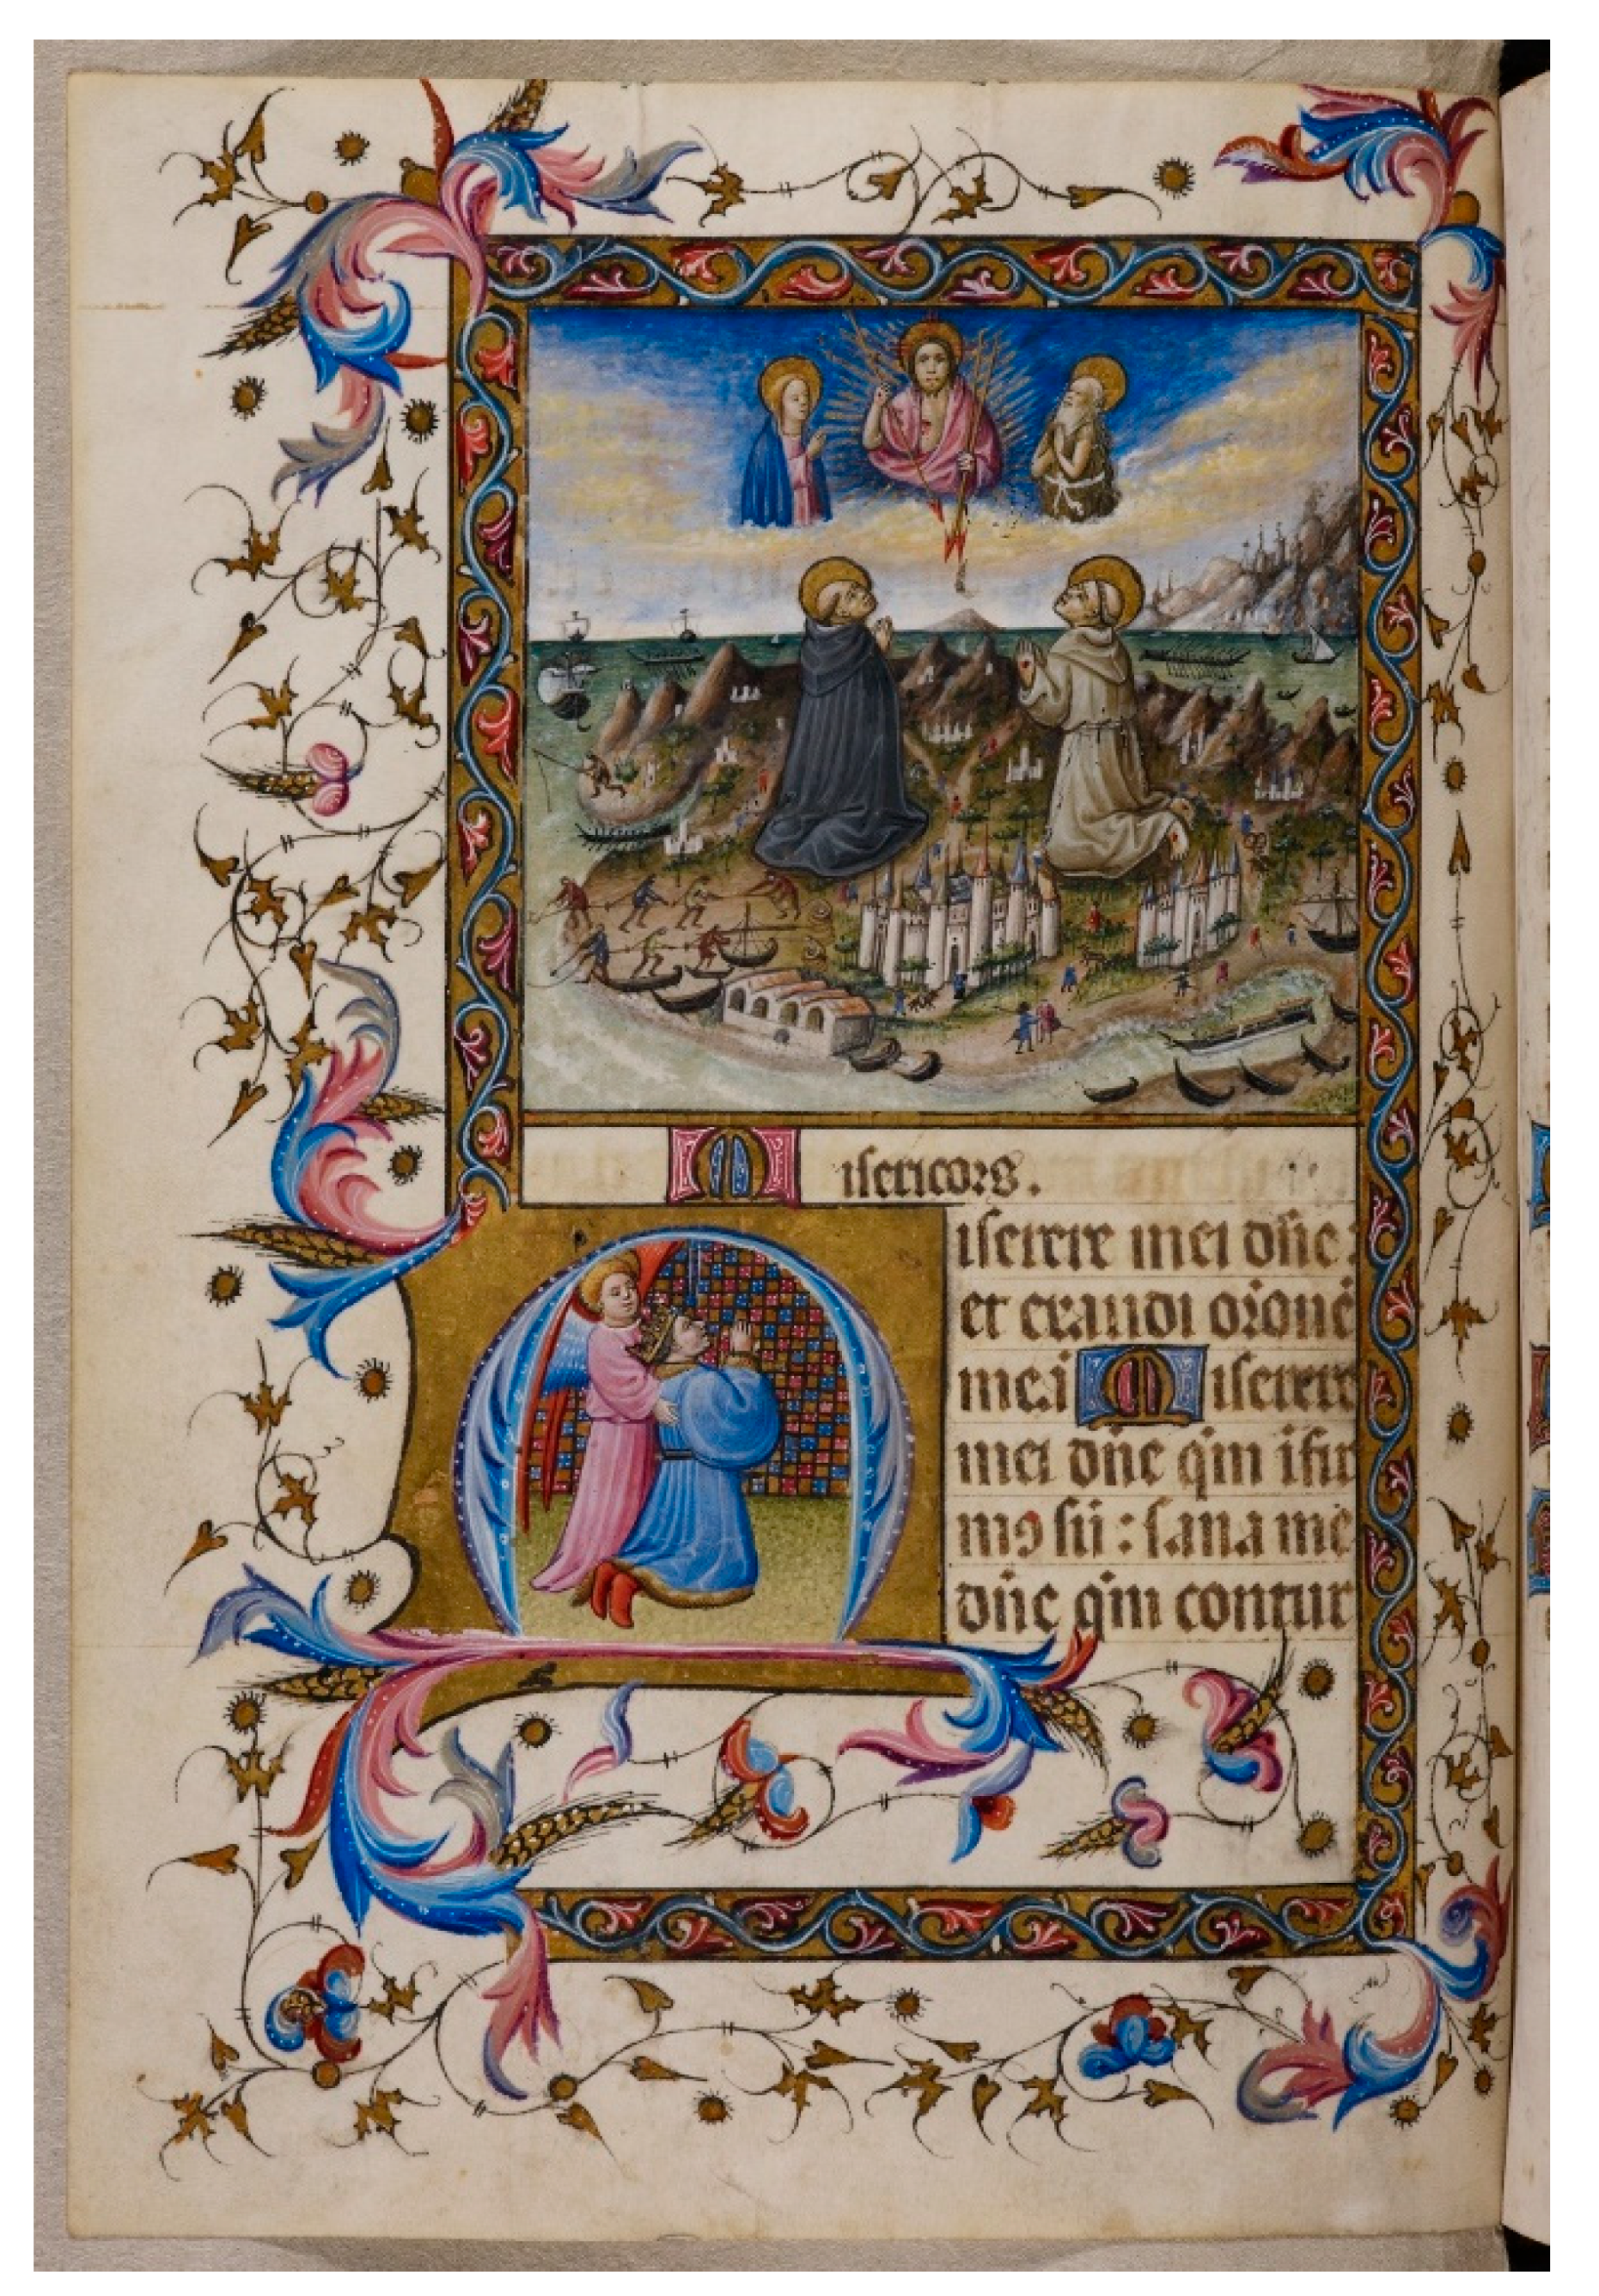 Misericors.
Miserere mei dñe :
et exaudi orōnē
meā Miserere
mei dñe qm̄ ifir
mꝯ sū : sana me
dñe qm̄ contur